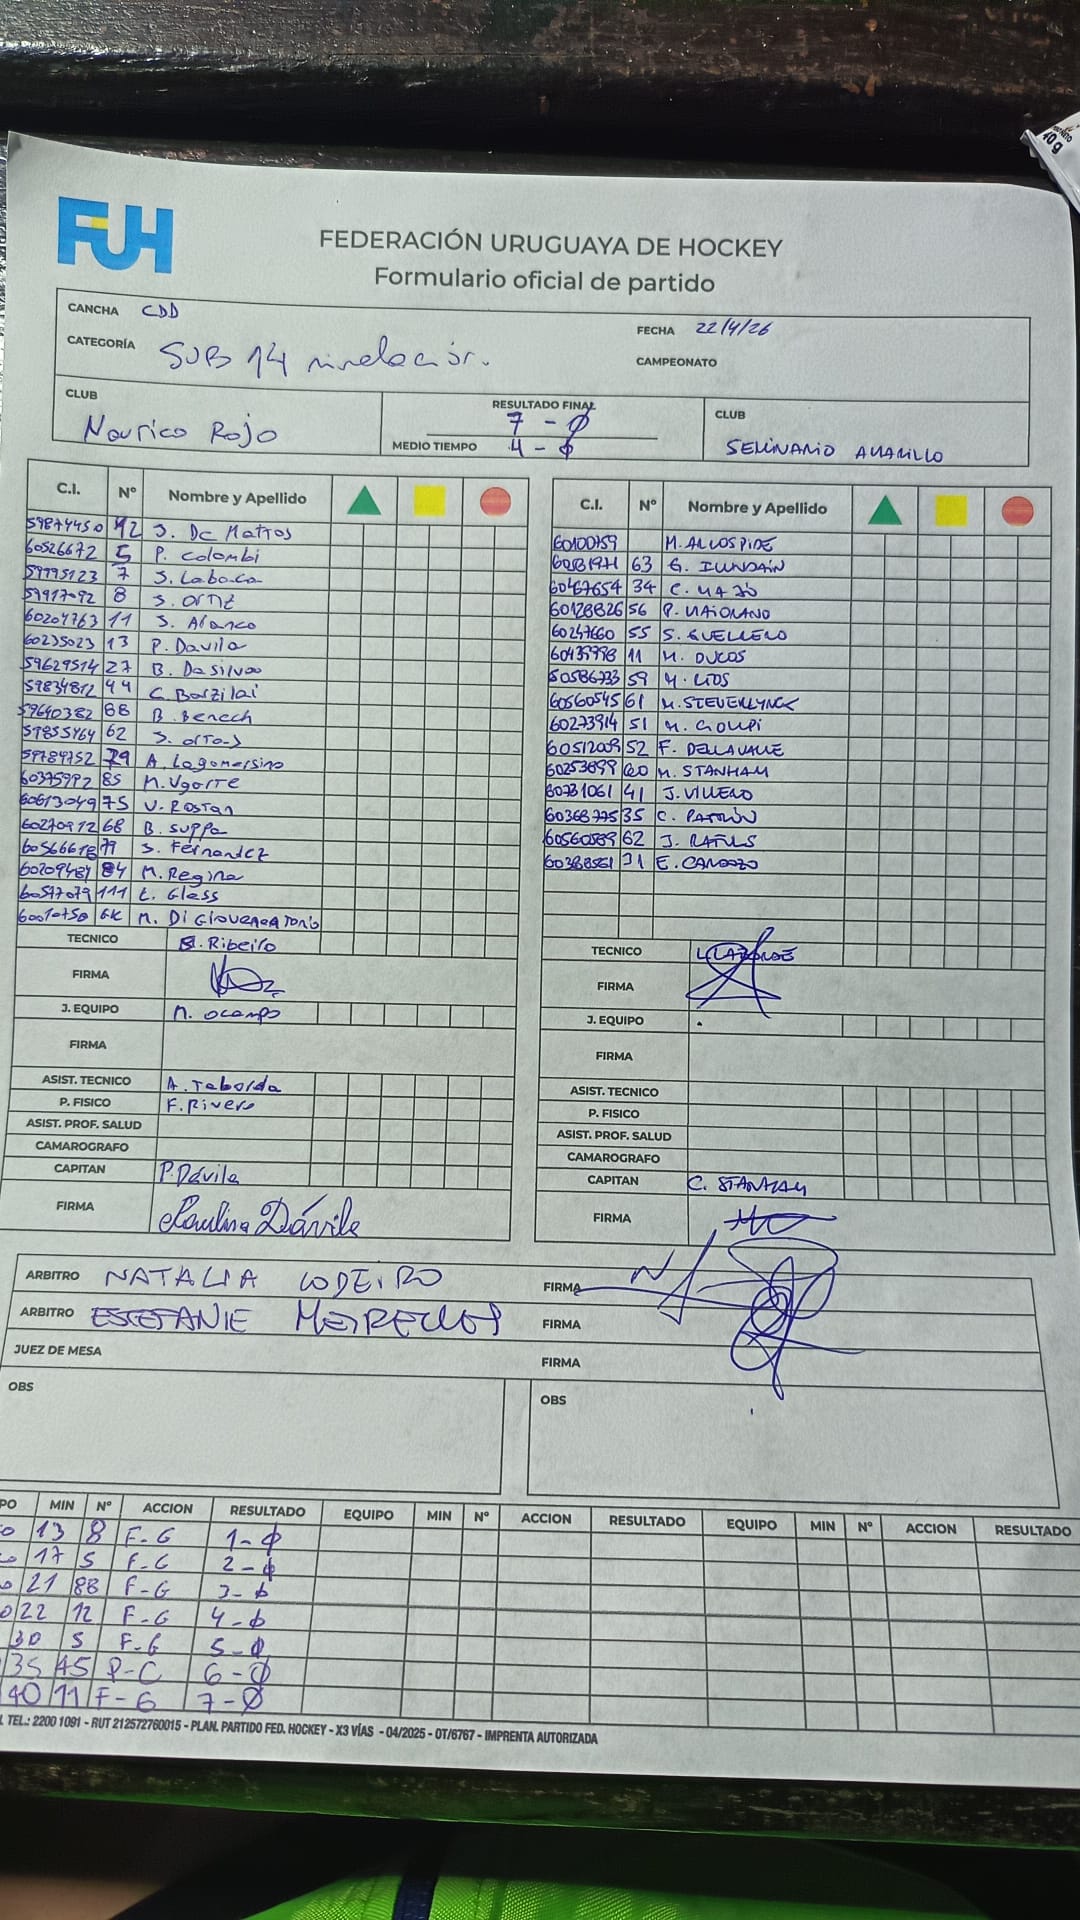 40 g
FUH
FEDERACIÓN URUGUAYA DE HOCKEY
Formulario oficial de partido
CANCHA CDD
FECHA 22/4/26
CATEGORÍA SUB 14 nivelación.
CAMPEONATO
CLUB Naurico Rojo
RESULTADO FINAL 7 - 0
MEDIO TIEMPO 4 - 0
CLUB SEMINARIO AMARILLO
C.I. Nº Nombre y Apellido
59874450 12 S. De Mattos
60526672 5 P. Colombi
59995123 7 S. Labaca
8 S. Ortiz
60204763 11 S. Alonco
60235023 13 P. Davila
59629514 27 B. Dasilva
59834812 44 C. Barzilai
59640382 88 B. Benech
59855464 62 S.
59784752 79 A. Lagomarsino
60375992 85 M. Ugarte
60613049 75 V. Rostan
60270912 68 B. Suppa
S. Fernandez
84 M. Regina
111 L. Glass
GK M. Di Giovenantonio
TECNICO Ribeiro
FIRMA
J. EQUIPO M. Ocampo
FIRMA
ASIST. TECNICO A. Taborda
P. FISICO F. Rivero
ASIST. PROF. SALUD
CAMAROGRAFO
CAPITAN P. Dávila
FIRMA Paulina Dávila
C.I. Nº Nombre y Apellido
60100759 M. ALLOSPIDE
63 G. ILUNDAIN
60467654 34 C. MAJÓ
60128826 56 P. MAIORANO
60247660 55 S. GUELLERO
11 M. DUCOS
50586733 59 M. LIDS
60560545 61 M. STEVERLYNCK
60273914 51 M. GOLPI
60512009 52 F. DELLAVALLE
60253899 20 M. STANHAM
60731061 41 J. VILLERO
60368775 35 C. PATRÓN
60560589 62 J. RAFULS
60388561 31 E. CARDOZO
TECNICO L. LABORDE
FIRMA
J. EQUIPO
FIRMA
ASIST. TECNICO
P. FISICO
ASIST. PROF. SALUD
CAMAROGRAFO
CAPITAN C. STANHAM
FIRMA
ARBITRO NATALIA LODEIRO FIRMA
ARBITRO ESTEFANIE MEIRELLES FIRMA
JUEZ DE MESA FIRMA
OBS
OBS
PO MIN Nº ACCION RESULTADO EQUIPO MIN Nº ACCION RESULTADO EQUIPO MIN Nº ACCION RESULTADO
13 8 F-G 1-0
17 5 F-G 2-0
21 88 F-G 3-0
22 12 F-G 4-0
30 5 F-G 5-0
35 45 P-C 6-0
40 11 F-G 7-0
TEL.: 2200 1091 - RUT 212572760015 - PLAN. PARTIDO FED. HOCKEY - X3 VÍAS - 04/2025 - OT/6767 - IMPRENTA AUTORIZADA